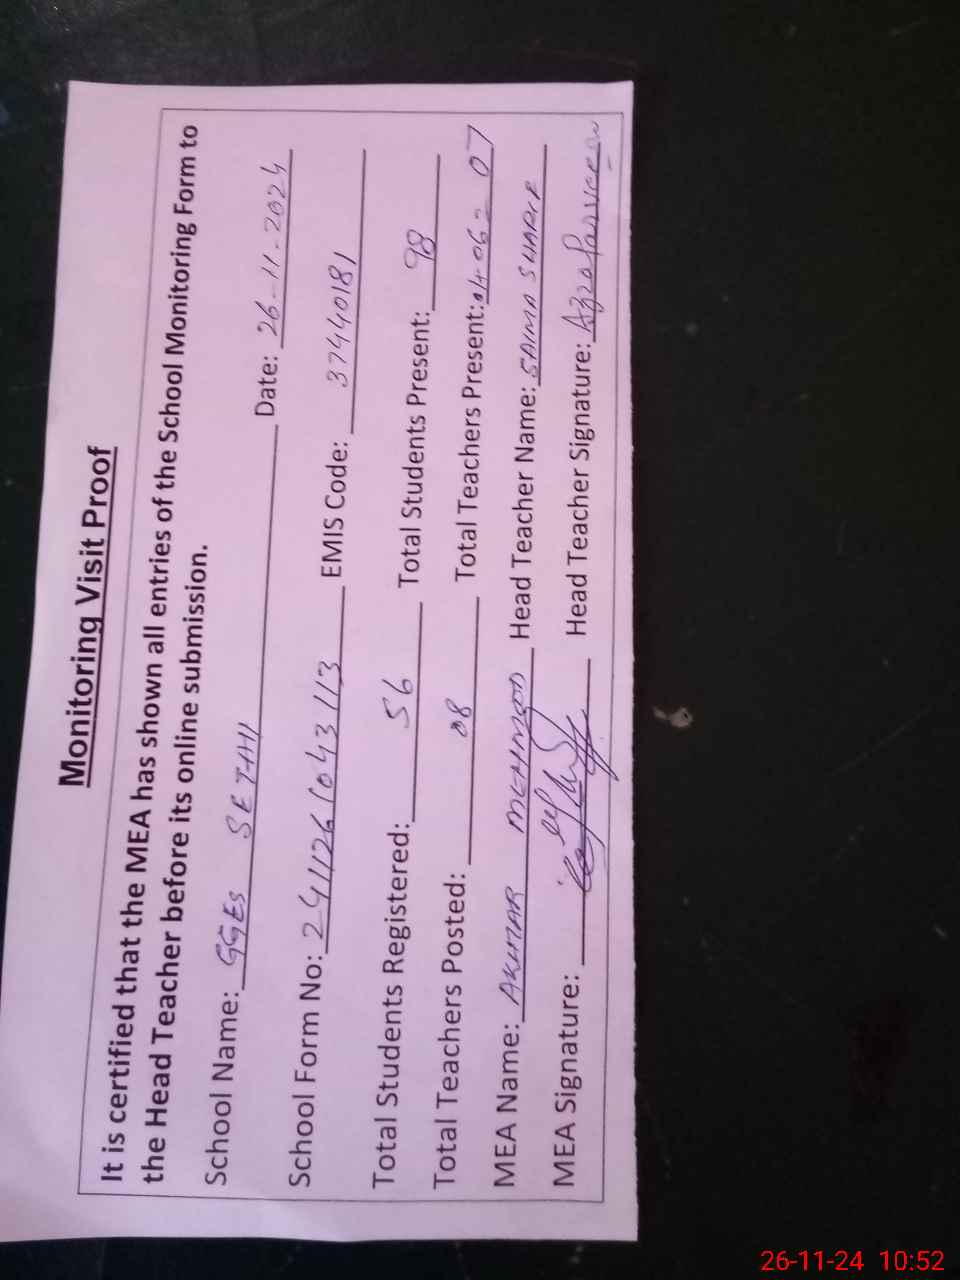 Monitoring Visit Proof
It is certified that the MEA has shown all entries of the School Monitoring Form to
the Head Teacher before its online submission.
School Name: GGES SETHI Date: 26-11-2024
School Form No: EMIS Code: 37440181
Total Students Registered: 56 Total Students Present: 98
Total Teachers Posted: 08 Total Teachers Present: 07
MEA Name: AKHTAR MEHMOOD Head Teacher Name: SAIMA SHARIF
MEA Signature: Head Teacher Signature: Azra Parveen
26-11-24 10:52